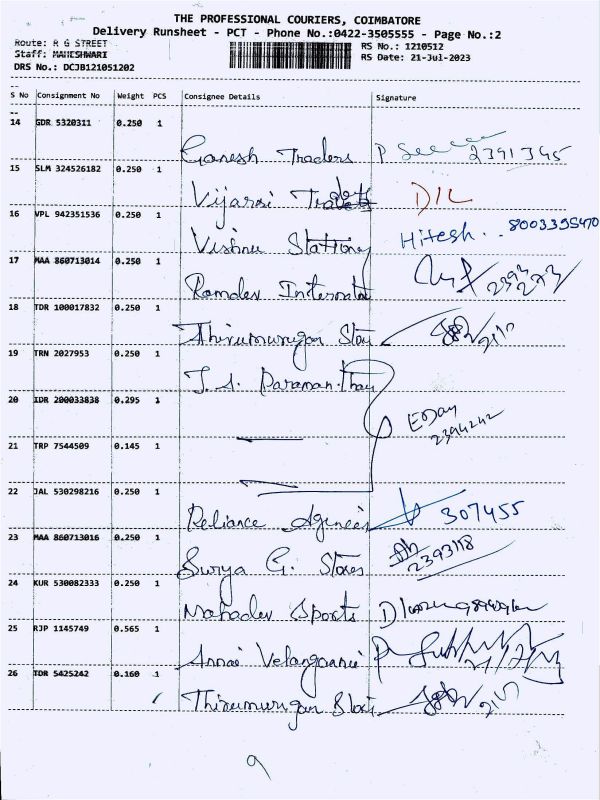 THE PROFESSIONAL COURIERS, COIMBATORE
Delivery Runsheet - PCT - Phone No.:0422-3505555 - Page No.:2
Route: R G STREET RS No.: 1210512
Staff: MAHESHWARI RS Date: 21-Jul-2023
DRS No.: DCJB121051202
S No Consignment No Weight PCS Consignee Details Signature
14 GDR 5320311 0.250 1
Ganesh Traders P 2391345
15 SLM 324526182 0.250 1
Vijarsi D/L
16 VPL 942351536 0.250 1
Vishnu Stationy Hitesh.. 8003395470
17 MAA 860713014 0.250 1
Ramdev Internatol 2394273
18 TDR 100017832 0.250 1
Thirumurugan Stou
19 TRN 2027953 0.250 1
T. S. Paraman.thau
20 IDR 200033838 0.295 1
2394242
21 TRP 7544509 0.145 1
22 JAL 530298216 0.250 1
Reliance Agencies 307455
23 MAA 860713016 0.250 1
Surya G. Stores 2393118
24 KUR 530082333 0.250 1
Mahadev Sports
25 RJP 1145749 0.565 1
Annai Velangannie
26 TDR 5425242 0.160 1
Thirumurugan
9